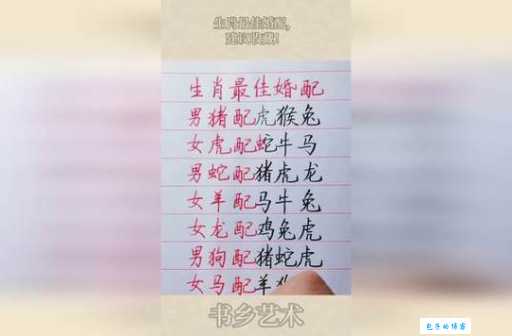 生肖最佳婚配,
建议收藏!
生肖最佳婚配
男猪配虎猴兔
女虎配蛇牛马
男蛇配猪虎龙
女羊配马牛兔
女龙配鸡兔虎
男狗配猪蛇虎
女马配羊
书乡艺术
包子的博客